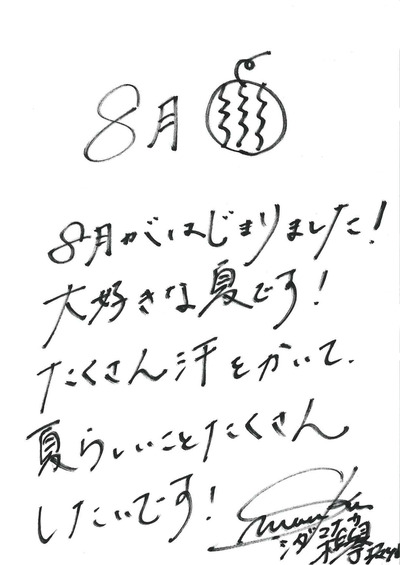 8月
8月がはじまりました！
大好きな夏です！
たくさん汗をかいて、
夏らしいことたくさん
したいです！
シダ コウ